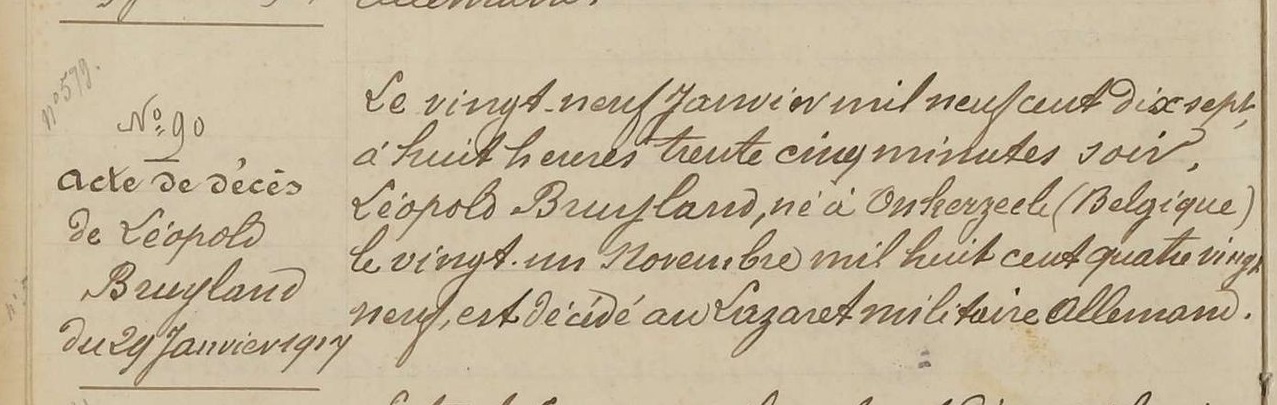 Allemand.
n° 579.
N° 90
acte de décès
de Léopold
Bruyland
du 29 Janvier 1917
Le vingt-neuf Janvier mil neuf cent dix sept,
à huit heures trente cinq minutes soir,
Léopold Bruyland, né à Onkerzeele (Belgique)
le vingt-un Novembre mil huit cent quatre vingt
neuf, est décédé au Lazaret militaire Allemand.